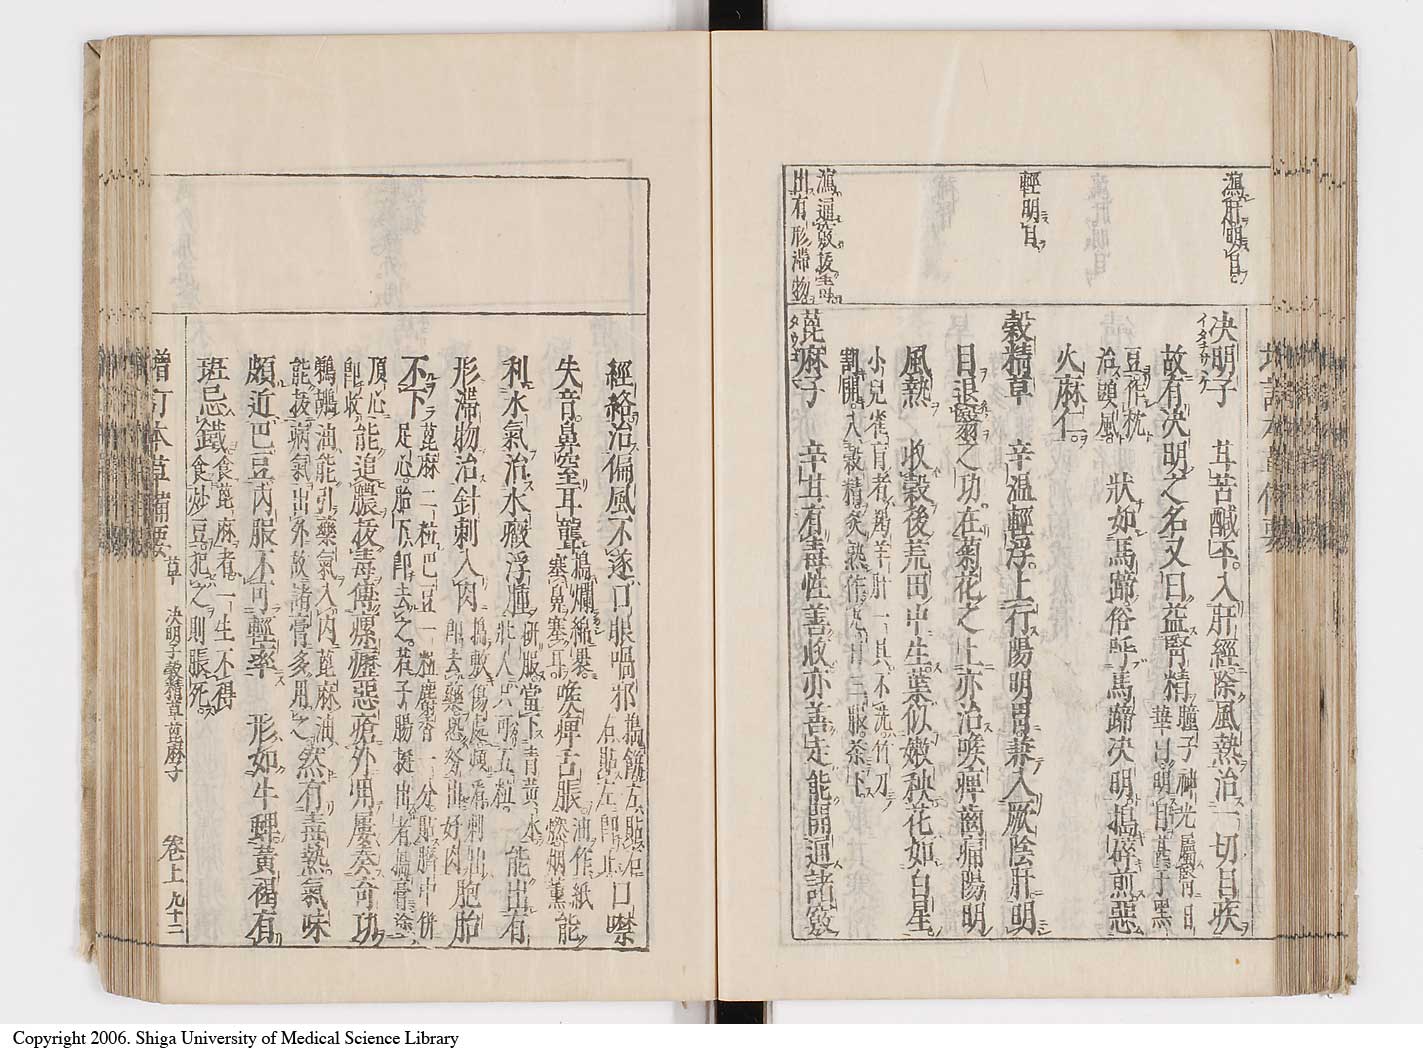 瀉肝明目
輕明目
瀉通竅拔毒
出有形滯物
决明子 甘苦鹹平入肝經除風熱治一切目疾
故有决明之名又曰益腎精 瞳子神光屬腎日
華曰明目甚于黑
豆作枕
治頭風 狀如馬蹄俗呼馬蹄决明搗碎煎惡
火麻仁
穀精草 辛温輕浮上行陽明胃兼入厥陰肝明
目退翳之功在菊花之上亦治喉痺齒痛陽明
風熱 收穀後荒田中生葉似嫩秧花如白星
小兒雀盲者羯羊肝一具不洗竹刀
割開入穀精灸熟作丸日三服茶下
蓖麻子 辛甘有毒性善收亦善走能開通諸竅
經絡治偏風不遂口眼喎邪 搗餅左貼右
右貼左即止 口噤
失音鼻窒耳聾 搗爛綿裹
塞鼻塞耳 喉痺舌脹 油作紙
燃烟薰 能
利水氣治水癥浮腫 研服當下青黃水
壯人只可五粒 能出有
形滯物治針刺入肉 搗敷傷處頻看刺出
即去藥恐努出好肉 胞胎
不下 蓖麻二粒巴豆一粒麝香一分貼臍中併
足心胎下即去之若子腸挺出者搗膏塗
頂心
即收 能追膿拔毒傅瘰癧惡瘡外用屢奏奇功
鵜鶘油能引藥氣入内蓖麻油
能拔病氣出外故諸膏多用之 然有毒熱氣味
頗近巴豆内服不可輕率 形如牛蜱黃褐有
斑忌鐵 食蓖麻者一生不得
食炒豆犯之則脹死
增訂本草備要 草 决明子穀精草蓖麻子 卷上 九十二